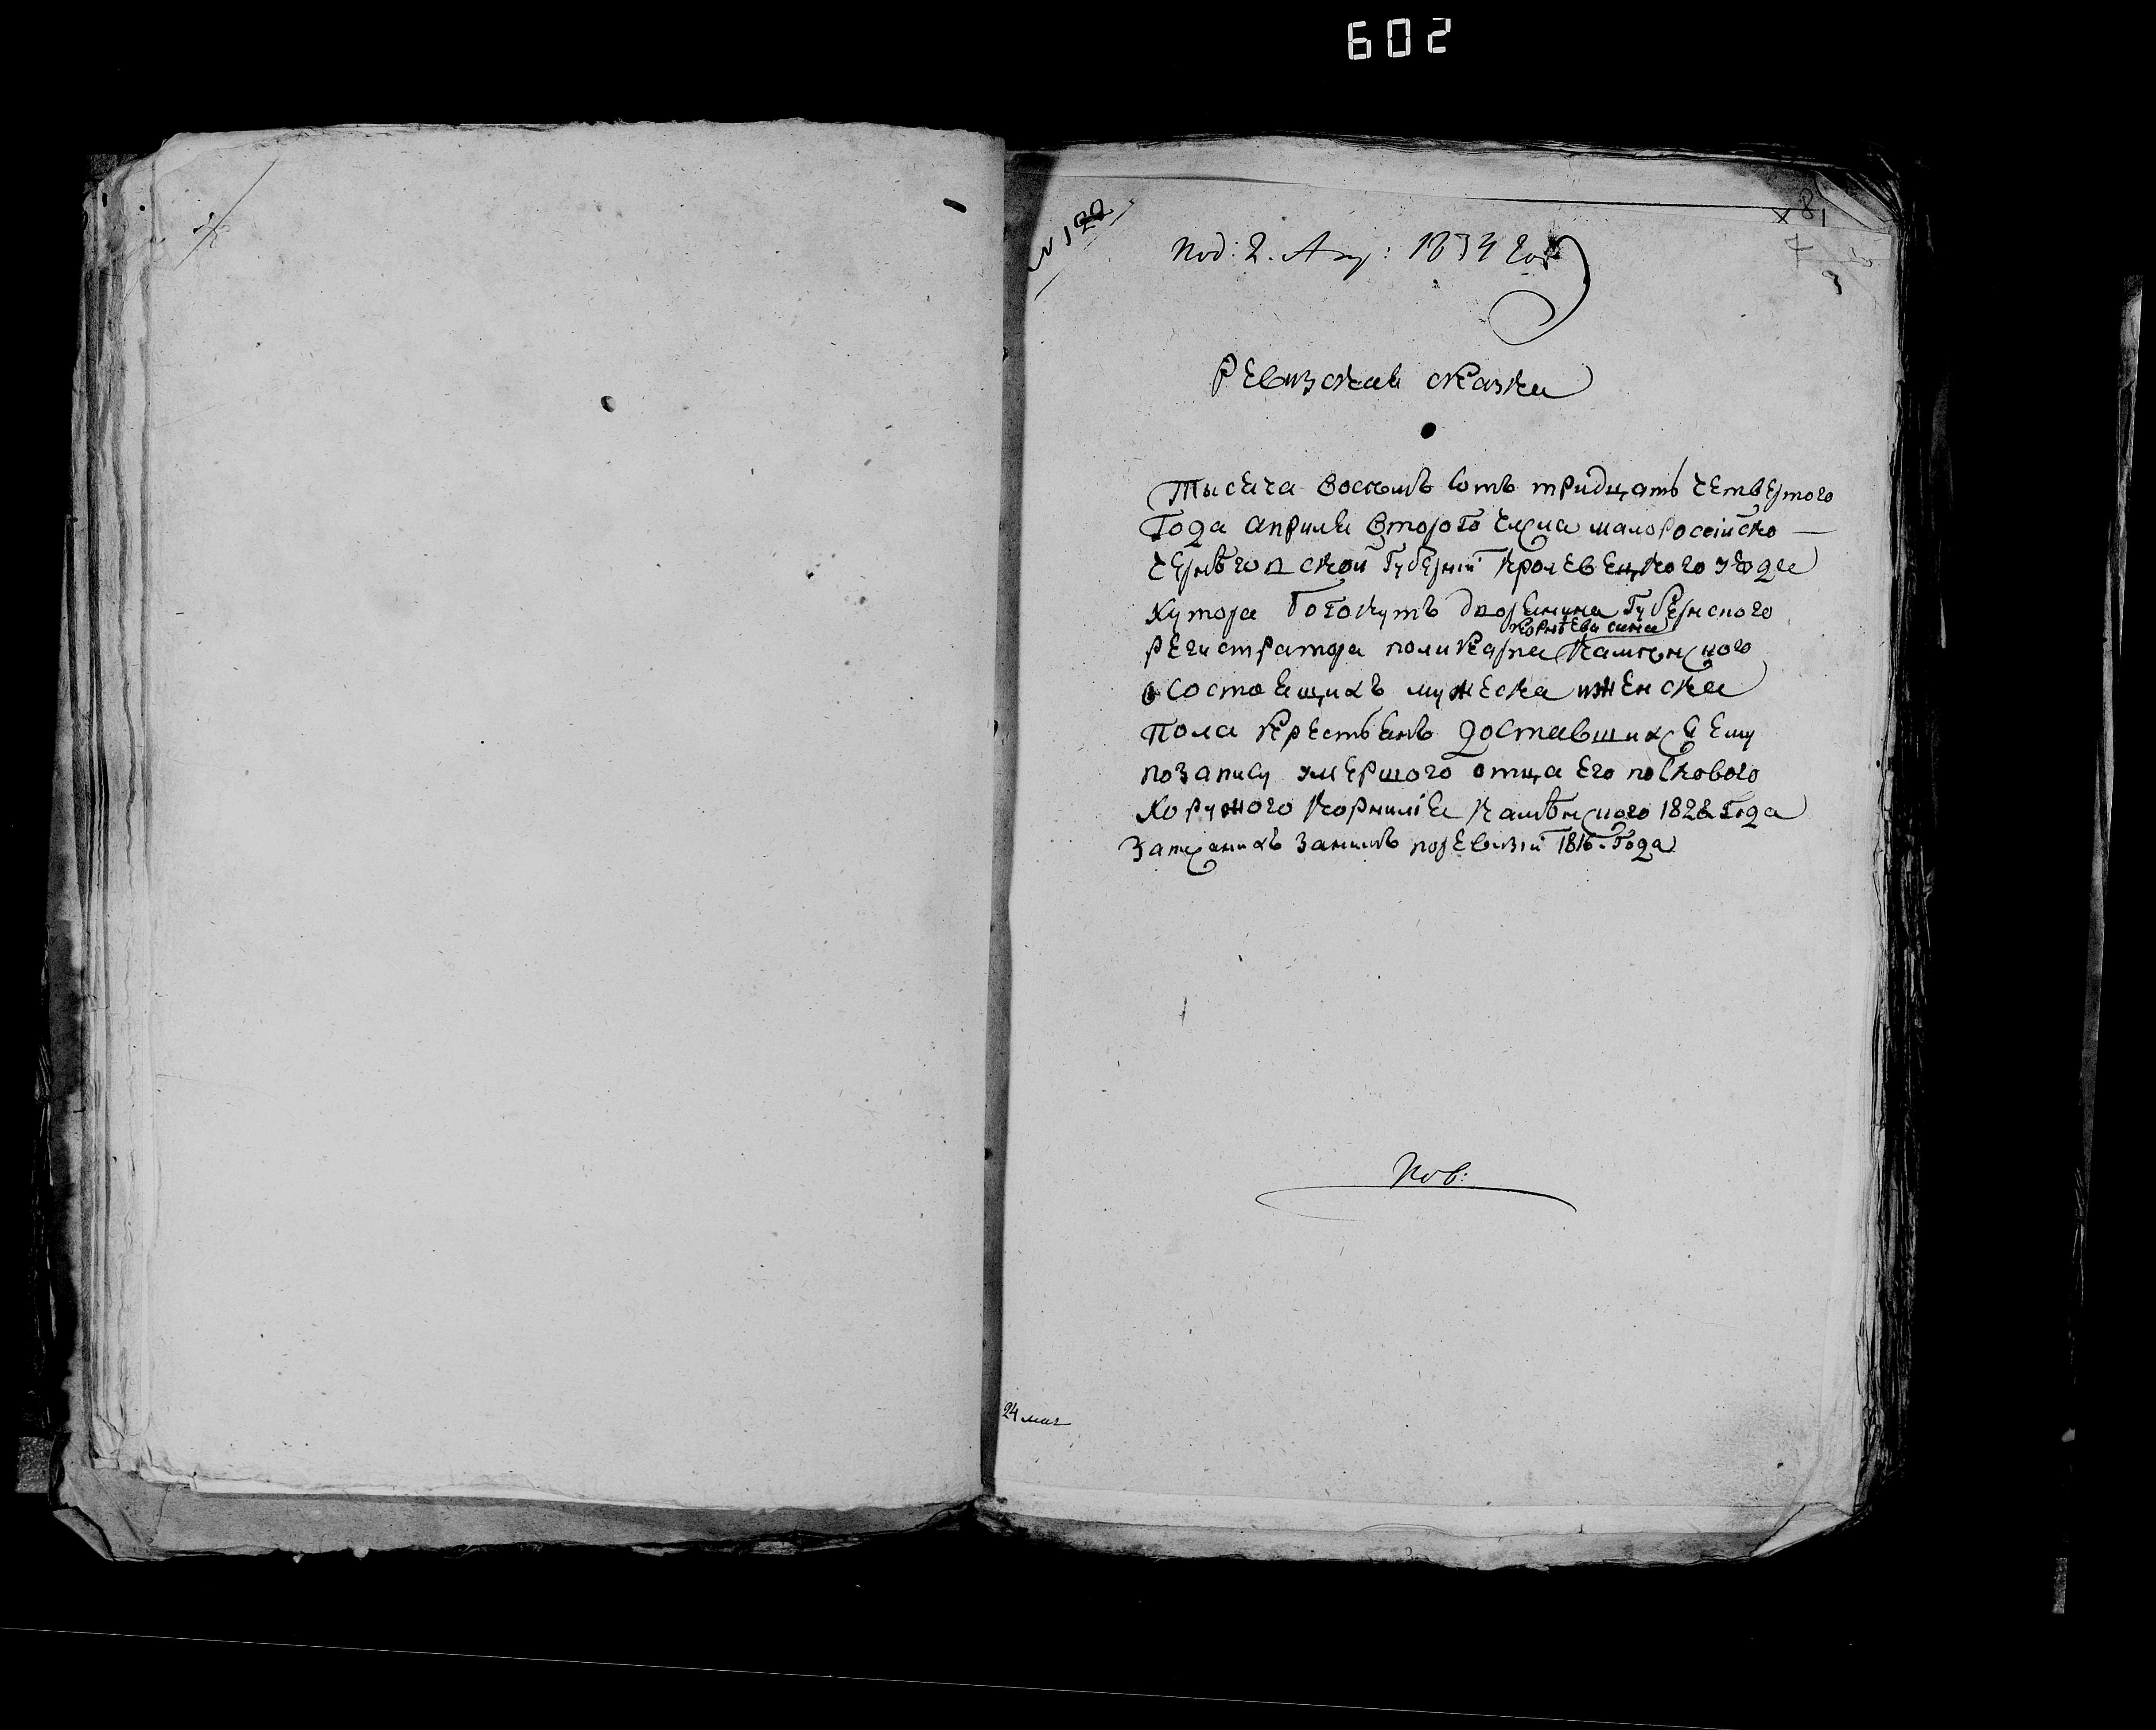 602
№ 122
Под: 2. Апр: 1834 года
81
Ревизская сказка
Тысяча восемь сотъ тридцать четвертого
Года апреля второго числа малоросейско
Чернѣговской Губерніи Кролевецкого уезда
Хутора дворянина Губернского
Корнѣева сина
регистратора поликарпа Каменского
о состоящихъ мужеска и женска
пола крестьянъ доставшихся ему
по запису умершого отца его полкового
Хоружого Корнилія Камѣнского 1828 Года
записанихъ за нимъ по ревизіи 1816 Года
Пов:
24 мая